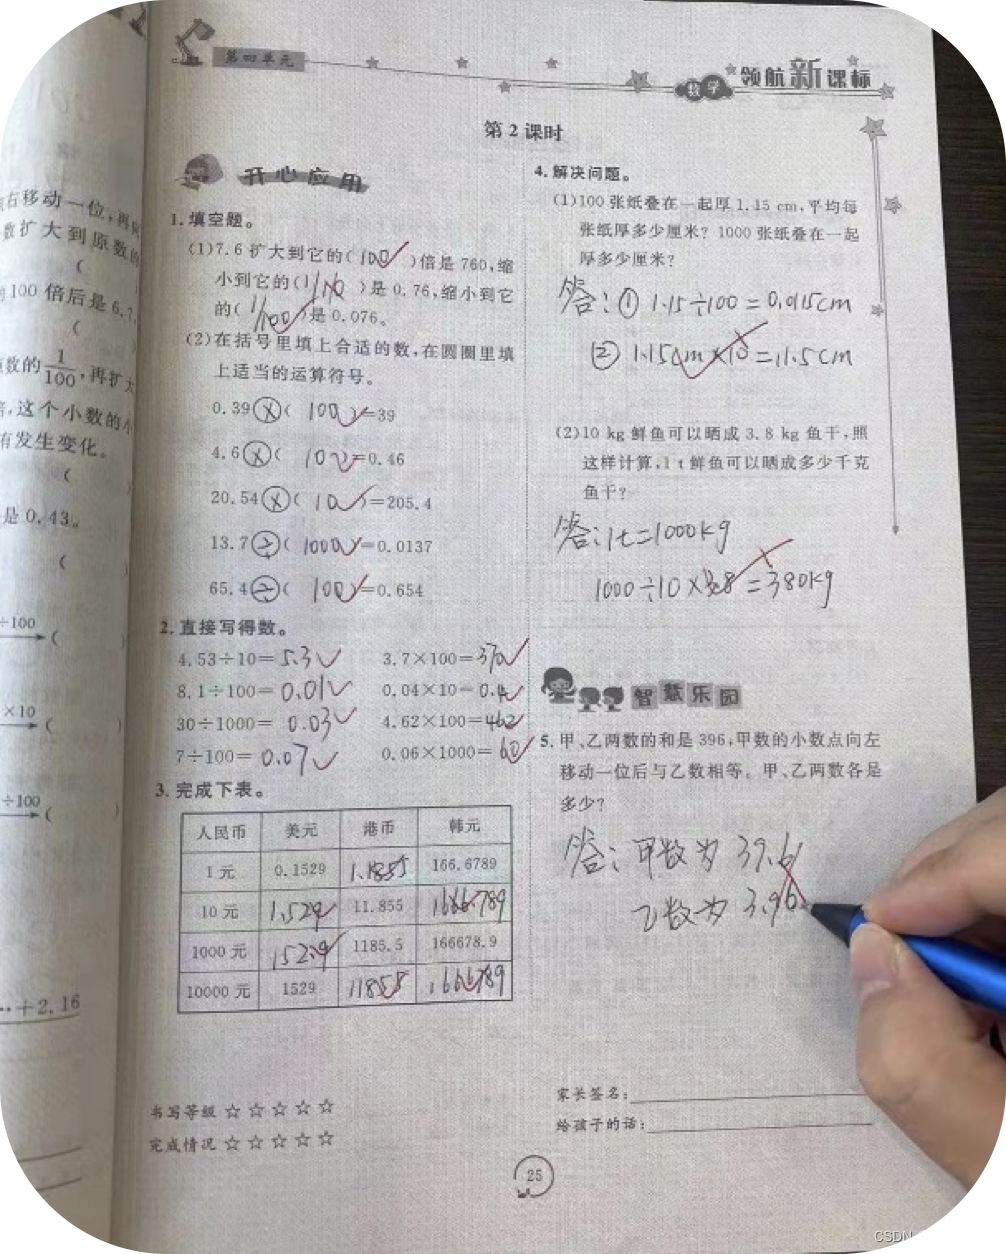 第四单元
数学 领航新课标
第 2 课时
右移动一位,再
数扩大到原数的
(
100 倍后是 6.7,
( )
数的 1/100,再扩大
倍,这个小数的小
有发生变化。
( )
是 0.43。
( )
÷100
( )
×10
( )
÷100
( )
…+2.16
开心应用
1. 填空题。
(1)7.6 扩大到它的( 100 )倍是 760,缩
小到它的( 1/10 )是 0.76,缩小到它
的( 1/100 )是 0.076。
(2)在括号里填上合适的数,在圆圈里填
上适当的运算符号。
0.39 × ( 100 )=39
4.6 × ( 10 )=0.46
20.54 × ( 10 )=205.4
13.7 ÷ ( 1000 )=0.0137
65.4 ÷ ( 100 )=0.654
2. 直接写得数。
4.53÷10= 5.3 3.7×100= 370
8.1÷100= 0.01 0.04×10= 0.4
30÷1000= 0.03 4.62×100= 462
7÷100= 0.07 0.06×1000= 60
3. 完成下表。
人民币 美元 港币 韩元
1 元 0.1529 1.1855 166.6789
10 元 1.529 11.855 1666.789
1000 元 152.9 1185.5 166678.9
10000 元 1529 11855 1666789
书写等级 ☆ ☆ ☆ ☆ ☆
完成情况 ☆ ☆ ☆ ☆ ☆
4. 解决问题。
(1)100 张纸叠在一起厚 1.15 cm,平均每
张纸厚多少厘米? 1000 张纸叠在一起
厚多少厘米?
答:① 1.15÷100=0.015cm
② 1.15cm×10=11.5cm
(2)10 kg 鲜鱼可以晒成 3.8 kg 鱼干,照
这样计算,1 t 鲜鱼可以晒成多少千克
鱼干?
答:1t=1000kg
1000÷10×3.8=380kg
智慧乐园
5. 甲、乙两数的和是 396,甲数的小数点向左
移动一位后与乙数相等。甲、乙两数各是
多少?
答:甲数为 39.6
乙数为 3.96
家长签名:
给孩子的话:
25
CSDN